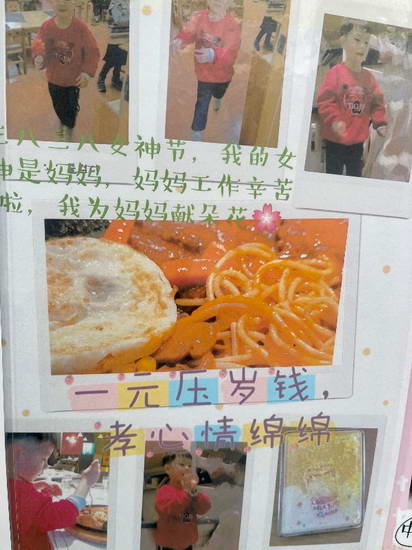 三八三八女神节，我的女
神是妈妈，妈妈工作辛苦
啦，我为妈妈献朵花
一元压岁钱，
孝心情绵绵
中